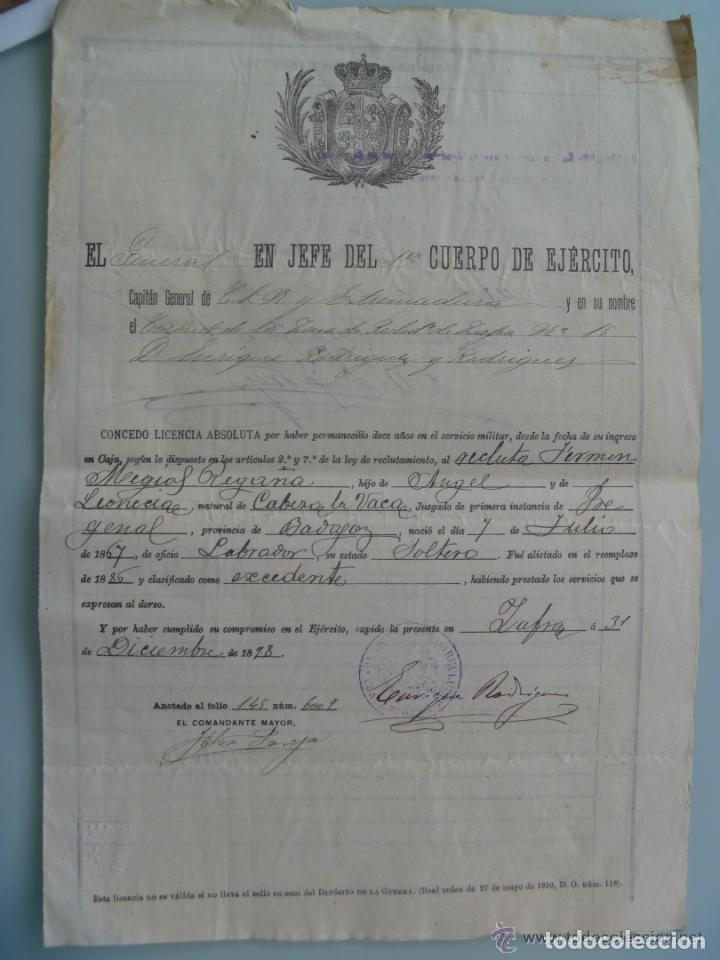 EL General EN JEFE DEL 1er CUERPO DE EJÉRCITO,
Capitán General de C. L. N. y Extremadura y en su nombre
el Coronel de la Zona de Reclut.º de Zafra Nº 15
D. Enrique Rodriguez y Rodriguez
CONCEDO LICENCIA ABSOLUTA por haber permanecido doce años en el servicio militar, desde la fecha de su ingreso
en Caja, según lo dispuesto en los artículos 2.º y 7.º de la ley de reclutamiento, al recluta Fermin
Megias Regaña, hijo de Angel y de
Leonicia, natural de Cabeza la Vaca, Juzgado de primera instancia de Fre
genal, provincia de Badajoz, nació el día 7 de Julio
de 1867, de oficio Labrador, su estado Soltero. Fué alistado en el reemplazo
de 1886 y clasificado como excedente, habiendo prestado los servicios que se
expresan al dorso.
Y por haber cumplido su compromiso en el Ejército, expido la presente en Zafra á 31
de Diciembre de 1898.
Enrique Rodriguez
Anotado al folio 145 núm. 6009
EL COMANDANTE MAYOR,
Esta licencia no es válida si no lleva el sello en seco del DEPÓSITO DE LA GUERRA. (Real orden de 27 de mayo de 1890, D. O. núm. 118).
www.todocoleccion.net
todocoleccion